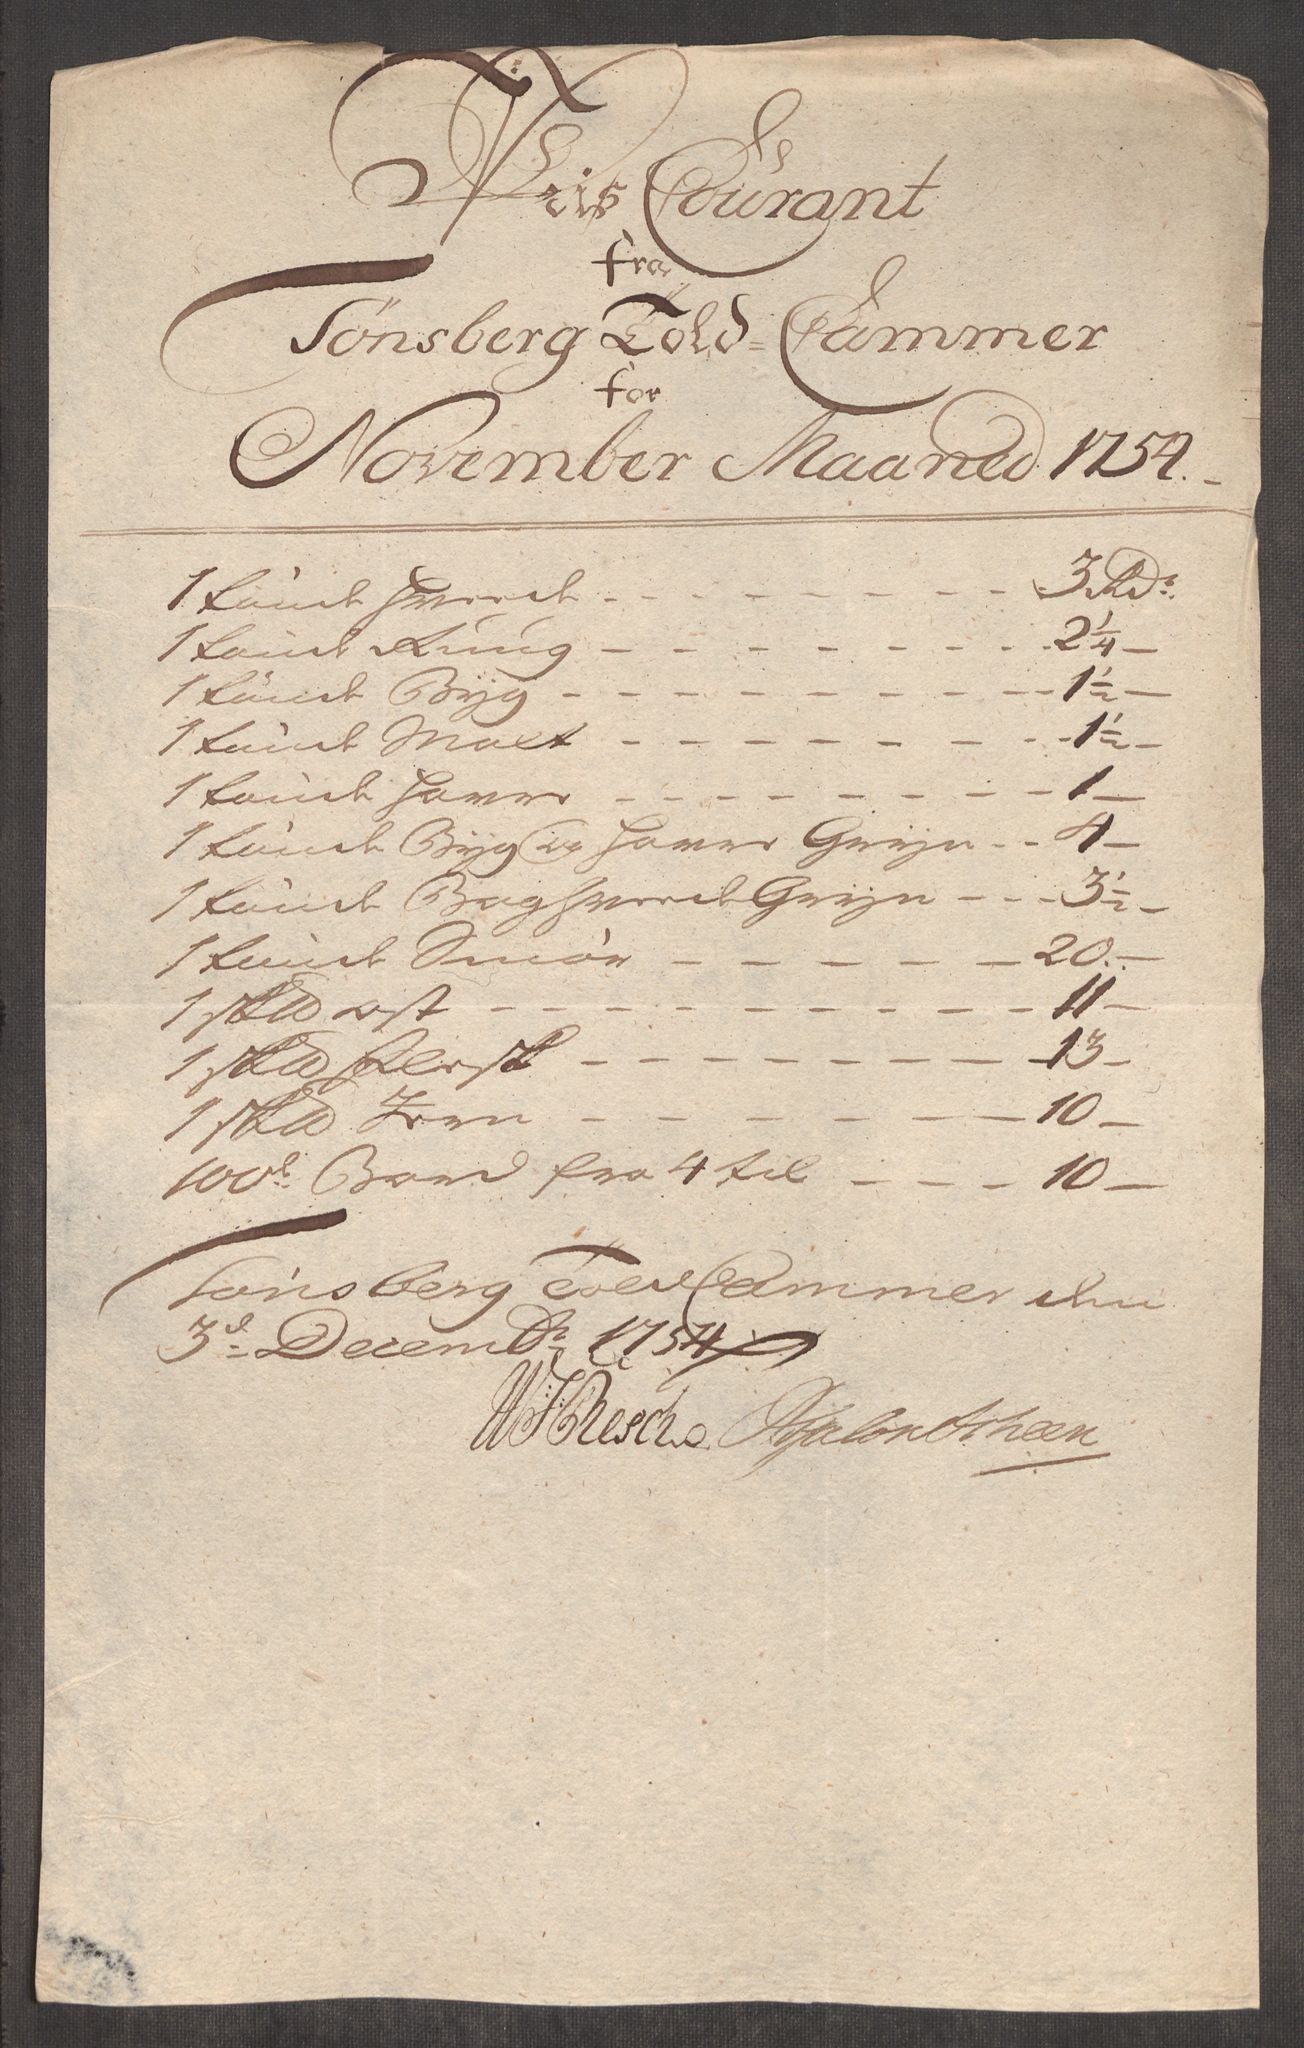 Pris Courant
fra
Tönsberg Told=Cammer
for
November Maaned 1754.
1 tönde Hvede - - - 3 Rdr.
1 tönde Rúug - - - 2 1/4 -
1 tönde Bÿg - - - 1 1/2 -
1 tönde Malt - - - 1 1/2 -
1 tönde Havre - - - 1 -
1 tönde Bÿg og Havre Grÿn - - 4 -
1 tönde Boghvede Grÿn - - - 3 1/2 -
1 tönde Smör - - - 20. -
1 sk℔ ost - - - 11 -
1 sk℔ flesk - - - 13 -
1 sk℔ Jern - - - 10 -
100d. Bord fra 4 til - - - 10 -
Tönsberg Told Cammer den
3d. Decembr. 1754